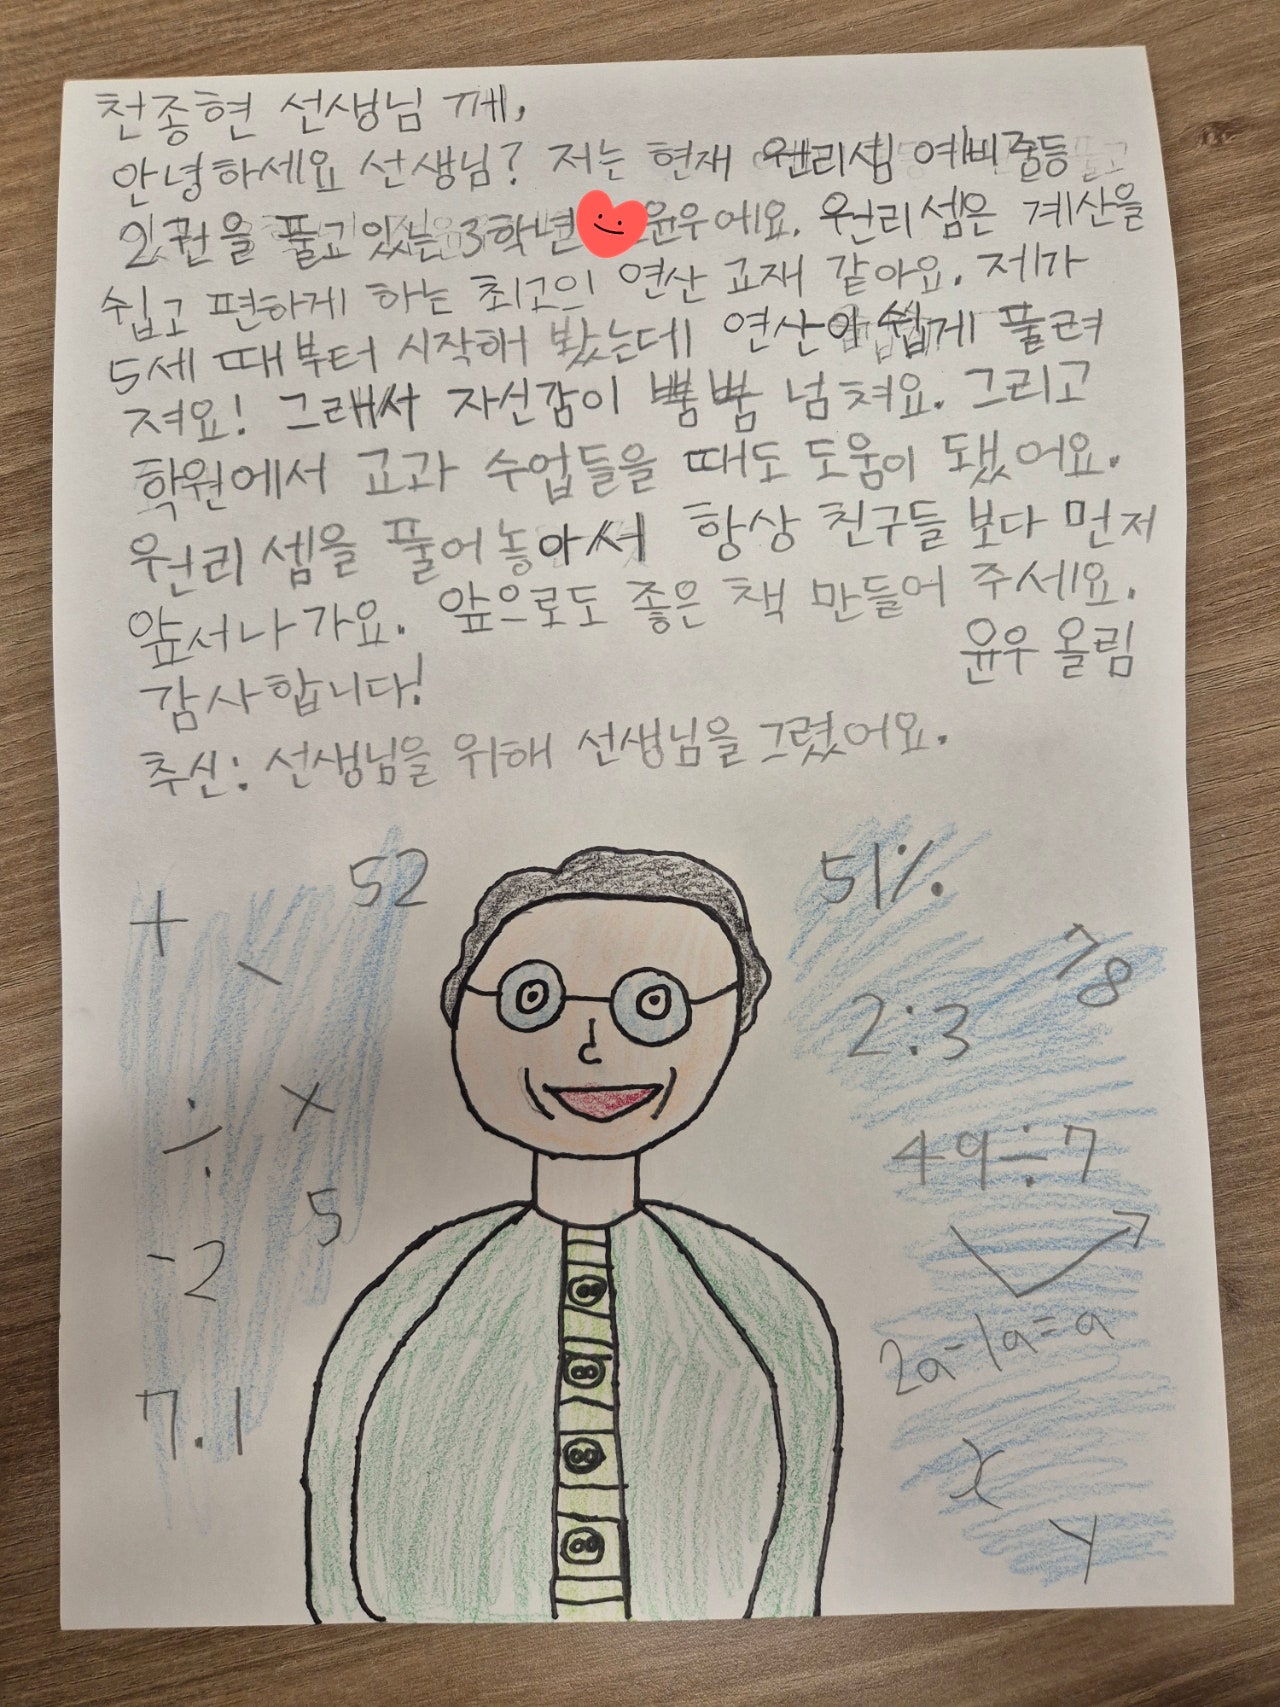 천종현 선생님 께,
안녕하세요 선생님? 저는 현재 원리셈 예비중등
2권을 풀고 있는 3학년 윤우에요. 원리 셈은 계산을
쉽고 편하게 하는 최고의 연산 교재 같아요. 제가
5세 때부터 시작해 봤는데 연산이 쉽게 풀려
져요! 그래서 자신감이 뿜뿜 넘쳐요. 그리고
학원에서 교과 수업들을 때도 도움이 됐어요.
원리 셈을 풀어놓아서 항상 친구들 보다 먼저
앞서나가요. 앞으로도 좋은 책 만들어 주세요.
감사합니다!
윤우 올림
추신: 선생님을 위해 선생님을 그렸어요.
52
51%
+
-
78
2:3
÷
×
49÷7
5
-2
2a-1a=a
7.1
x
y